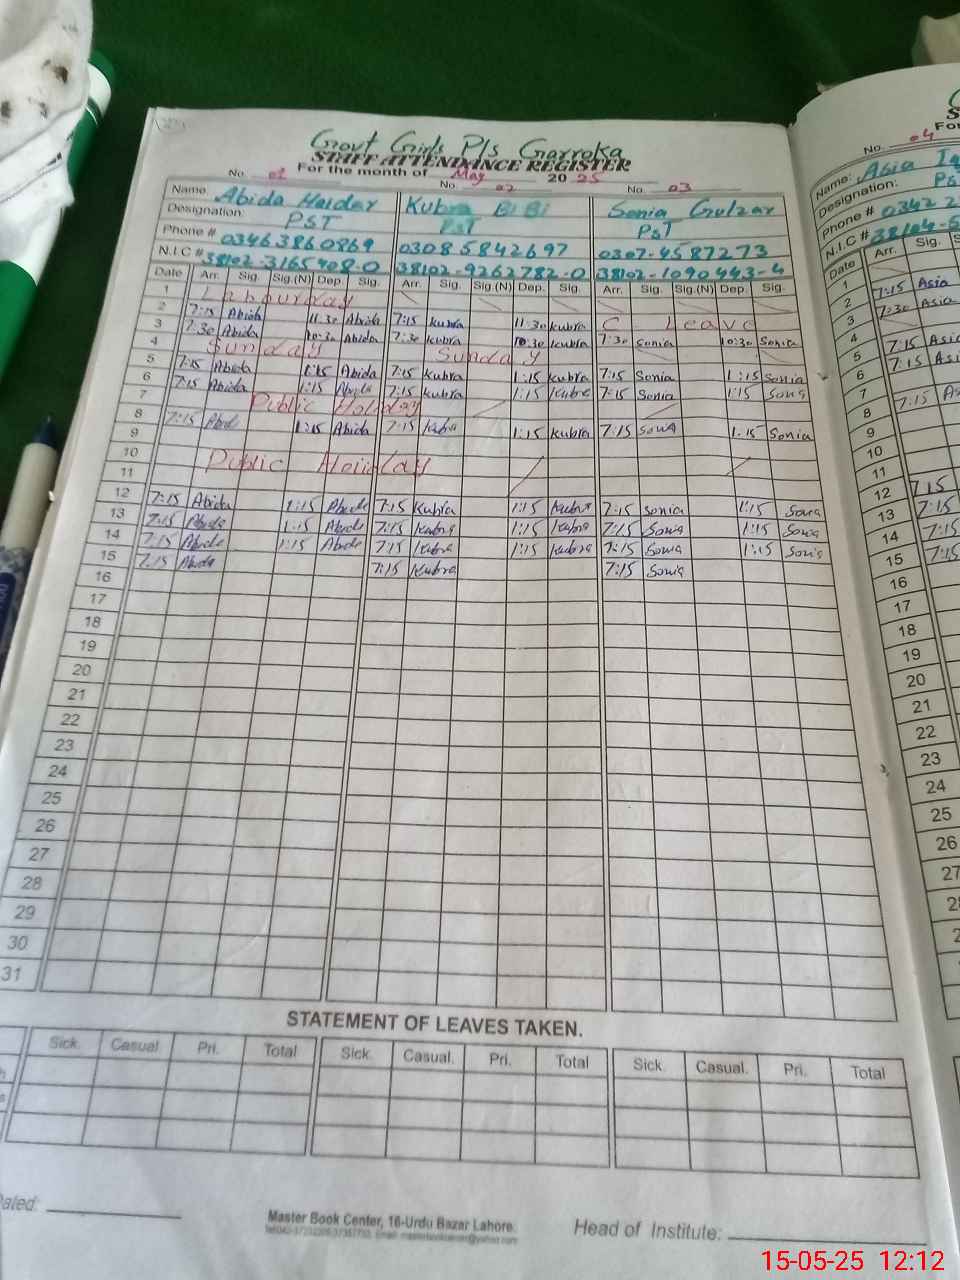 Govt Girls P/s Garroka
STAFF ATTENDANCE REGISTER
For the month of May 2025
No. 01 No. 02 No. 03
Name: Abida Haidar Kubra BiBi Sonia Gulzar
Designation: PST PST PST
Phone # 03463860869 03085842697 0307-4587273
N.I.C # 38102-3165908-0 38102-9262782-0 38102-1090443-4
Date Arr. Sig. Sig.(N) Dep. Sig. Arr. Sig. Sig.(N) Dep. Sig. Arr. Sig. Sig.(N) Dep. Sig.
1 Labour day
2 7:15 Abida 11:30 Abida 7:15 Kubra 11:30 Kubra C. Leave
3 7:30 Abida 10:30 Abida 7:30 Kubra 10:30 Kubra 7:30 Sonia 10:30 Sonia
4 Sunday Sunday
5 7:15 Abida 1:15 Abida 7:15 Kubra 1:15 Kubra 7:15 Sonia 1:15 Sonia
6 7:15 Abida 1:15 Abida 7:15 Kubra 1:15 Kubra 7:15 Sonia 1:15 Sonia
7 Public Holiday
8 7:15 Abida 1:15 Abida 7:15 Kubra 1:15 Kubra 7:15 Sonia 1:15 Sonia
9
10 Public Holiday
11
12 7:15 Abida 1:15 Abida 7:15 Kubra 1:15 Kubra 7:15 Sonia 1:15 Sonia
13 7:15 Abida 1:15 Abida 7:15 Kubra 1:15 Kubra 7:15 Sonia 1:15 Sonia
14 7:15 Abida 1:15 Abida 7:15 Kubra 1:15 Kubra 7:15 Sonia 1:15 Sonia
15 7:15 Abida 7:15 Kubra 7:15 Sonia
16
17
18
19
20
21
22
23
24
25
26
27
28
29
30
31
STATEMENT OF LEAVES TAKEN.
Sick. Casual Pri. Total Sick. Casual. Pri. Total Sick. Casual. Pri. Total
Master Book Center, 16-Urdu Bazar Lahore.
Head of Institute:
No. 04
Name: Asia
Designation:
Phone # 0342
N.I.C # 38104-
Date Arr. Sig.
1 7:15 Asia
2 7:30 Asia
3
4 7:15 Asia
5 7:15
6
7 7:15
8
9
10
11
12 7:15
13 7:15
14 7:15
15 7:15
16
17
18
19
20
21
22
23
24
25
26
27
15-05-25 12:12